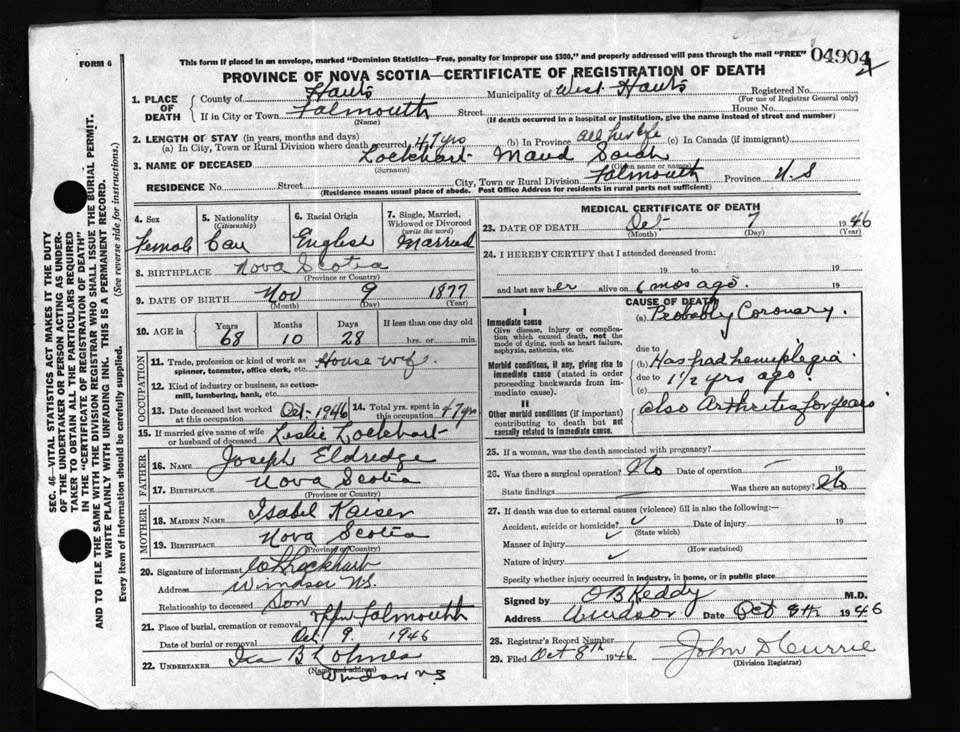 FORM 6
This form if placed in an envelope, marked "Dominion Statistics—Free, penalty for improper use $300," and properly addressed will pass through the mail "FREE"
04904
PROVINCE OF NOVA SCOTIA—CERTIFICATE OF REGISTRATION OF DEATH
SEC. 46—VITAL STATISTICS ACT MAKES IT THE DUTY
OF THE UNDERTAKER OR PERSON ACTING AS UNDER-
TAKER TO OBTAIN ALL THE PARTICULARS REQUIRED
IN THE "CERTIFICATE OF REGISTRATION OF DEATH"
AND TO FILE THE SAME WITH THE DIVISION REGISTRAR WHO SHALL ISSUE THE BURIAL PERMIT.
WRITE PLAINLY WITH UNFADING INK. THIS IS A PERMANENT RECORD.
Every item of information should be carefully supplied. (See reverse side for instructions.)
1. PLACE OF DEATH
County of Hants Municipality of West Hants Registered No.
(For use of Registrar General only)
If in City or Town Falmouth Street House No.
(Name) (If death occurred in a hospital or institution, give the name instead of street and number)
2. LENGTH OF STAY (in years, months and days)
(a) In City, Town or Rural Division where death occurred 47 yrs (b) In Province all her life (c) In Canada (if immigrant)
3. NAME OF DECEASED Lockhart Maud Sarah
(Surname) (Given name or names)
RESIDENCE No. Street City, Town or Rural Division Falmouth Province N.S
(Residence means usual place of abode. Post Office Address for residents in rural parts not sufficient)
4. Sex
Female
5. Nationality
(Citizenship)
Can
6. Racial Origin
English
7. Single, Married,
Widowed or Divorced
(write the word)
Married
8. BIRTHPLACE Nova Scotia
(Province or Country)
9. DATE OF BIRTH Nov 9 1877
(Month) (Day) (Year)
10. AGE in Years Months Days If less than one day old
68 10 28 hrs. or min.
OCCUPATION
11. Trade, profession or kind of work as
spinner, teamster, office clerk, etc. House wife
12. Kind of industry or business, as cotton-
mill, lumbering, bank, etc.
13. Date deceased last worked
at this occupation Oct-1946
14. Total yrs. spent in
this occupation 47 yrs
15. If married give name of wife
or husband of deceased Leslie Lockhart
FATHER
16. NAME Joseph Eldredge
17. BIRTHPLACE Nova Scotia
(Province or Country)
MOTHER
18. MAIDEN NAME Isabel Kaiser
19. BIRTHPLACE Nova Scotia
(Province or Country)
20. Signature of informant Lockhart
Address Windsor N.S.
Relationship to deceased Son
21. Place of burial, cremation or removal Falmouth
Date of burial or removal Oct. 9. 1946
22. UNDERTAKER Ira B
(Name and address)
Windsor N.S
MEDICAL CERTIFICATE OF DEATH
23. DATE OF DEATH Oct- 7 1946
(Month) (Day) (Year)
24. I HEREBY CERTIFY that I attended deceased from:
19 to 19
and last saw her alive on 6 mos ago. 19
CAUSE OF DEATH
I
Immediate cause
Give disease, injury or complica-
tion which caused death, not the
mode of dying, such as heart failure,
asphyxia, asthenia, etc.
(a) Probably Coronary.
due to
Morbid conditions, if any, giving rise to
immediate cause (stated in order
proceeding backwards from im-
mediate cause).
(b) Has had hemiplegia
due to 1 1/2 yrs ago.
(c)
II
Other morbid conditions (if important)
contributing to death but not
causally related to immediate cause.
also Arthritis for years
25. If a woman, was the death associated with pregnancy?
26. Was there a surgical operation? No Date of operation 19
State findings Was there an autopsy? No
27. If death was due to external causes (violence) fill in also the following:—
Accident, suicide or homicide? Date of injury 19
(State which)
Manner of injury
(How sustained)
Nature of injury
Specify whether injury occurred in industry, in home, or in public place
Signed by O B Keddy M.D.
Address Windsor Date Oct 8th 1946
28. Registrar's Record Number
29. Filed Oct 8th 1946 John D Currie
(Division Registrar)